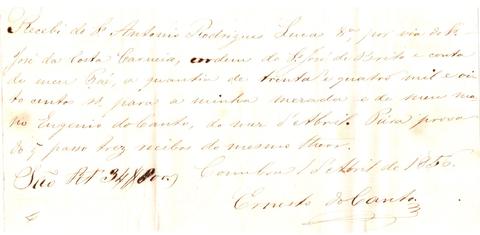 Recebi do Sr Antonio Rodrigues por via do Sr
José da Costa Carneiro, ordem do Sr José de Brito e conta
de meu Pai, a quantia de trenta e quatro mil e oi
to centos rs, para a minha mezada e de meu ma
no Eugenio do Canto, do mez d'Abril. Para prova
do q passo trez recibos do mesmo theor.
São Rs 34$800
Coimbra 1 d'Abril de 1850
Ernesto do Canto